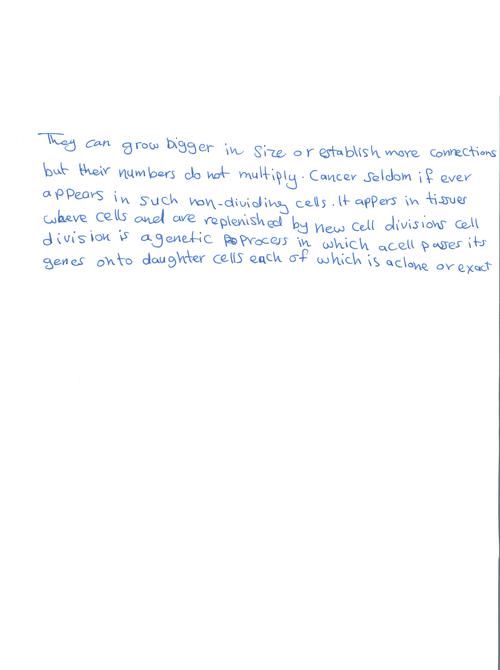 They can grow bigger in Size or establish more connections
but their numbers do not multiply. Cancer seldom if ever
appears in such non-dividing cells. It appers in tissues
where cells and are replenished by new cell divisions cell
division is a genetic process in which a cell passes its
genes onto daughter cells each of which is a clone or exact